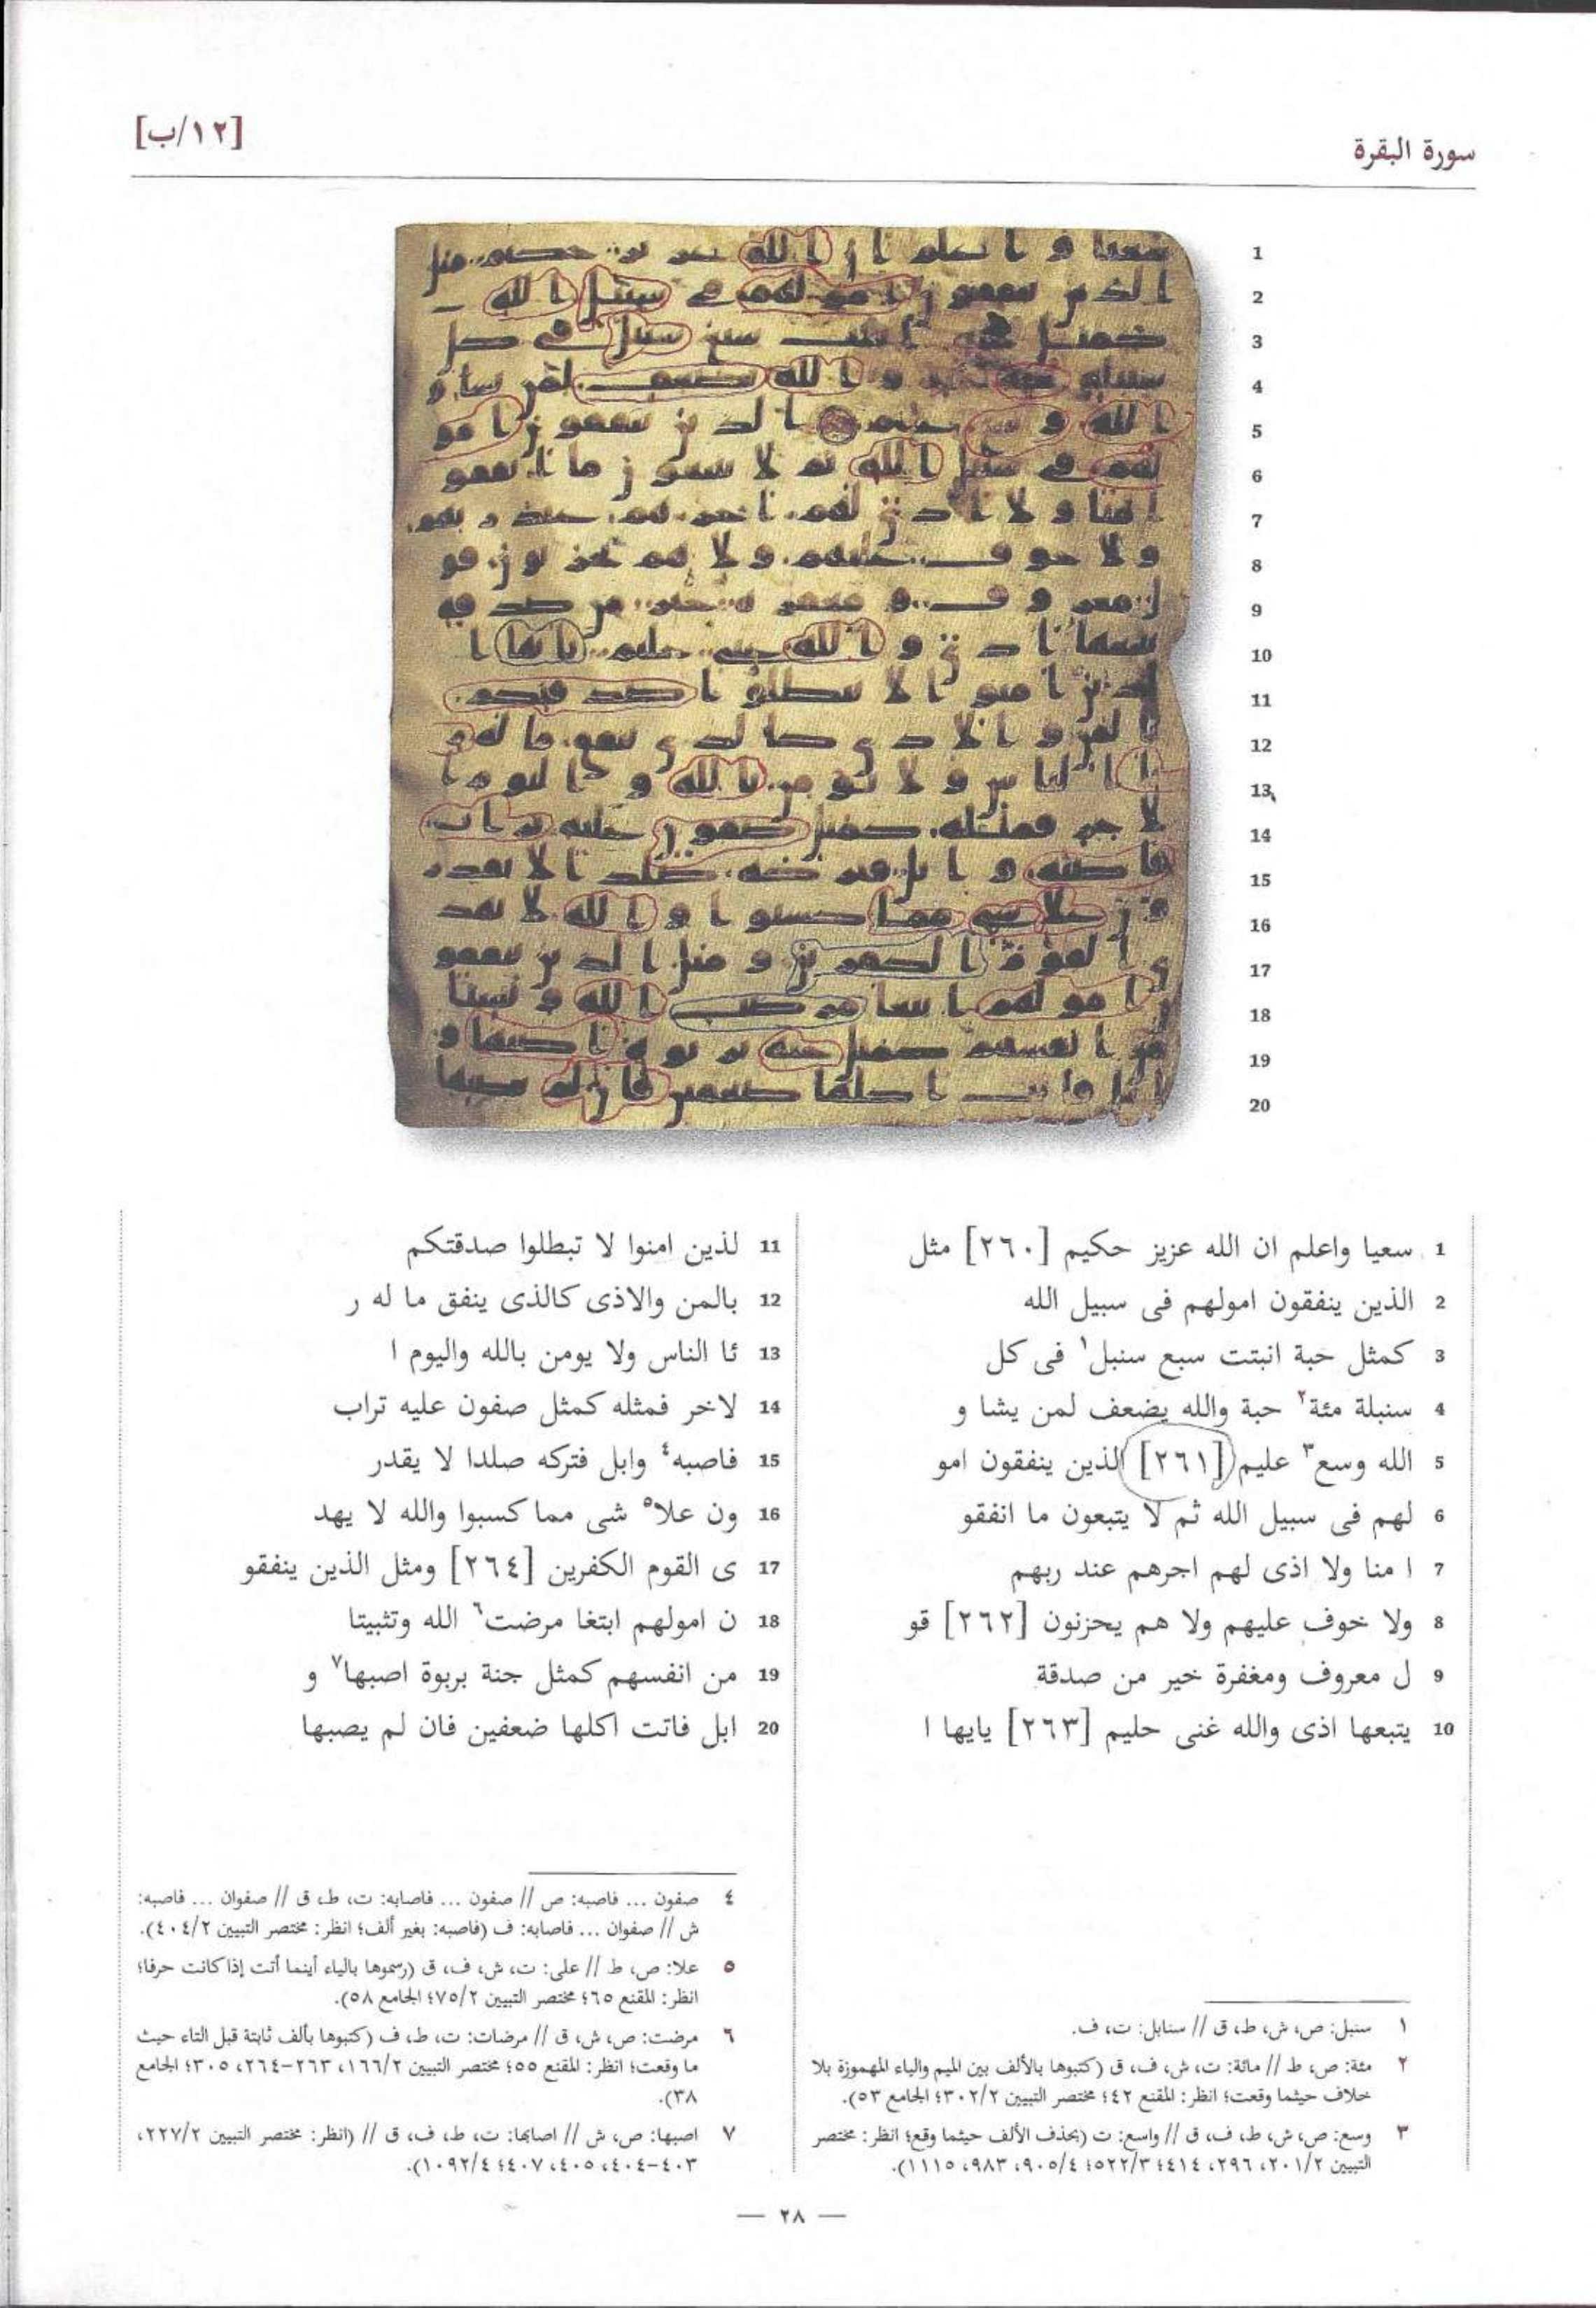 [١٢/ب]
سورة البقرة
1 سعيا واعلم ان الله عزيز حكيم [٢٦٠] مثل
2 الذين ينفقون امولهم فى سبيل الله
3 كمثل حبة انبتت سبع سنبل١ فى كل
4 سنبلة مئة٢ حبة والله يضعف لمن يشا و
5 الله وسع٣ عليم [٢٦١] الذين ينفقون امو
6 لهم فى سبيل الله ثم لا يتبعون ما انفقو
7 ا منا ولا اذى لهم اجرهم عند ربهم
8 ولا خوف عليهم ولا هم يحزنون [٢٦٢] قو
9 ل معروف ومغفرة خير من صدقة
10 يتبعها اذى والله غنى حليم [٢٦٣] يايها ا
11 لذين امنوا لا تبطلوا صدقتكم
12 بالمن والاذى كالذى ينفق ما له ر
13 ئا الناس ولا يومن بالله واليوم ا
14 لاخر فمثله كمثل صفون عليه تراب
15 فاصبه٤ وابل فتركه صلدا لا يقدر
16 ون علا٥ شى مما كسبوا والله لا يهد
17 ى القوم الكفرين [٢٦٤] ومثل الذين ينفقو
18 ن امولهم ابتغا مرضت٦ الله وتثبيتا
19 من انفسهم كمثل جنة بربوة اصبها٧ و
20 ابل فاتت اكلها ضعفين فان لم يصبها
١ سنبل: ص، ش، ط، ق // سنابل: ت، ف.
٢ مئة: ص، ط // مائة: ت، ش، ف، ق (كتبوها بالألف بين الميم والياء المهموزة بلا
خلاف حيثما وقعت؛ انظر: المقنع ٤٢؛ مختصر التبيين ٣٠٢/٢؛ الجامع ٥٣).
٣ وسع: ص، ش، ط، ف، ق // واسع: ت (بحذف الألف حيثما وقع؛ انظر: مختصر
التبيين ٢٠١/٢، ٢٩٦، ٤١٤؛ ٥٢٢/٣؛ ٩٠٥/٤، ٩٨٣، ١١١٥).
٤ صفون ... فاصبه: ص // صفون ... فاصابه: ت، ط، ق // صفوان ... فاصبه:
ش // صفوان ... فاصابه: ف (فاصبه: بغير ألف؛ انظر: مختصر التبيين ٤٠٤/٢).
٥ علا: ص، ط // على: ت، ش، ف، ق (رسموها بالياء أينما أتت إذا كانت حرفا؛
انظر: المقنع ٦٥؛ مختصر التبيين ٧٥/٢؛ الجامع ٥٨).
٦ مرضت: ص، ش، ق // مرضات: ت، ط، ف (كتبوها بألف ثابتة قبل التاء حيث
ما وقعت؛ انظر: المقنع ٥٥؛ مختصر التبيين ١٦٦/٢، ٢٦٣-٢٦٤، ٣٠٥؛ الجامع
٣٨).
٧ اصبها: ص، ش // اصابها: ت، ط، ف، ق // (انظر: مختصر التبيين ٢٢٧/٢،
٤٠٣-٤٠٤، ٤٠٥، ٤٠٧؛ ١٠٩٢/٤).
— ٢٨ —